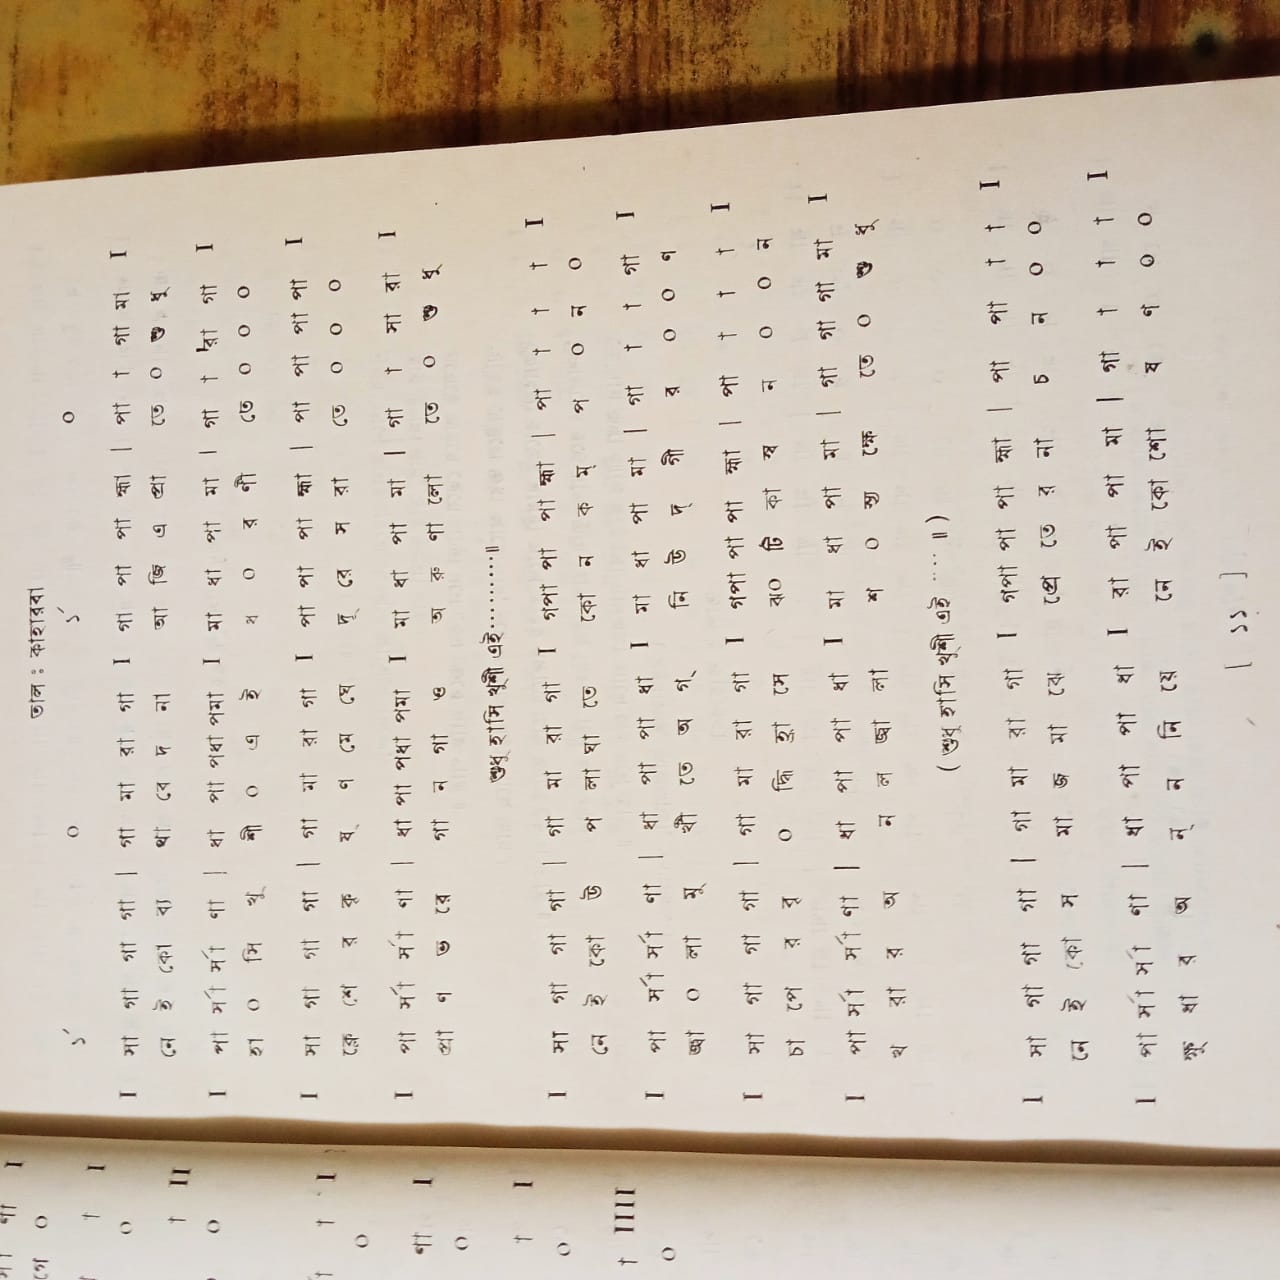 তাল : কাহারবা
১´ ০ ১´ ০
I সা গা গা গা | গা মা রা গা I গা পা পা হ্মা | পা † গা মা I
নে ই কো ব্য থা বে দ না আ জি এ প্রা তে ০ শু ধু
I পা র্সা র্সা ণা | ধা পা পধা পমা I মা ধা পা মা | গা † রা গা I
হা ০ সি খু শী ০ এ ই ধ ০ র ণী তে ০ ০ ০
I সা গা গা গা | গা মা রা গা I পা পা পা হ্মা | পা পা পা পা I
ক্লে শে র কৃ ষ্ ণ মে ঘে দূ রে স রা তে ০ ০ ০
I পা র্সা র্সা ণা | ধা পা পধা পমা I মা ধা পা মা | গা † সা রা I
প্রা ণ ভ রে গা ন গা ও অ রু ণা লো তে ০ শু ধু
শুধু হাসি খুশী এই..........॥
I সা গা গা গা | গা মা রা গা I গপা পা পা হ্মা | পা † † † I
নে ই কো উ প লা ঘা তে কো ন ক ম্ প ০ ন ০
I পা র্সা র্সা ণা | ধা পা পা ধা I মা ধা পা মা | গা † † গা I
জ্বা ০ লা মু খী তে অ গ্ নি উ দ্ গী র ০ ০ ণ
I সা গা গা গা | গা মা রা গা I গপা পা পা হ্মা | পা † † † I
চা পে র বৃ ০ দ্ধি হ্রা সে ঝ০ টি কা স্ব ন ০ ০ ন
I পা র্সা র্সা ণা | ধা পা পা ধা I মা ধা পা মা | গা গা গা মা I
খ রা র অ ন ল জ্বা লা শ ০ স্য ক্ষে তে ০ শু ধু
( শুধু হাসি খুশী এই .... ॥ )
I সা গা গা গা | গা মা রা গা I গপা পা পা হ্মা | পা পা † † I
নে ই কো স মা জ মা ঝে প্রে তে র না চ ন ০ ০
I পা র্সা র্সা ণা | ধা পা পা ধা I রা পা পা মা | গা † † † I
ক্ষু ধা র অ ন্ ন নি য়ে নে ই কো শো ষ ণ ০ ০
[ ১১ ]